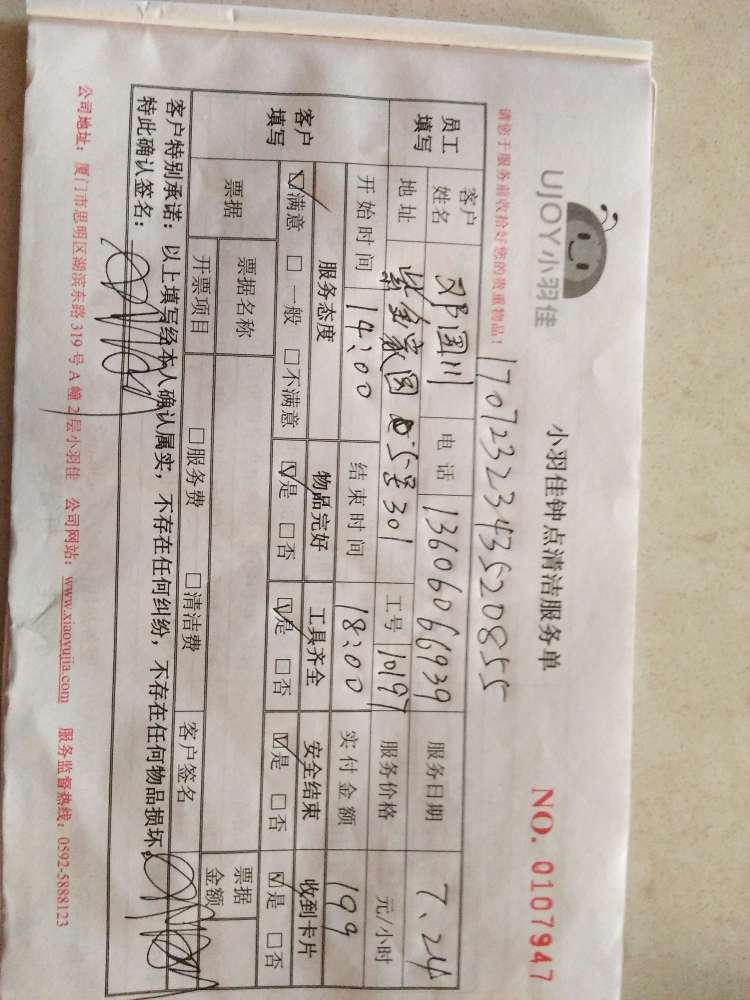 UJOY小羽佳
小羽佳钟点清洁服务单
NO. 0107947
请您于服务前收拾好您的贵重物品！
1707232343520855
员工填写 客户姓名 邓国川 电话 13606066939 服务日期 7、24
地址 紫金家园 5号301 工号 10197 服务价格 元/小时
开始时间 14:00 结束时间 18:00 实付金额 199
客户填写 服务态度 物品完好 工具齐全 安全结束 收到卡片
☑满意 □一般 □不满意 ☑是 □否 ☑是 □否 ☑是 □否 ☑是 □否
票据 票据名称 客户签名 票据金额
开票项目 □服务费 □清洁费
客户特别承诺：以上填写经本人确认属实，不存在任何纠纷，不存在任何物品损坏。
特此确认签名：
公司地址：厦门市思明区湖滨东路 319 号 A 幢 2 层小羽佳 公司网站：www.xiaoyujia.com 服务监督热线：0592-5888123